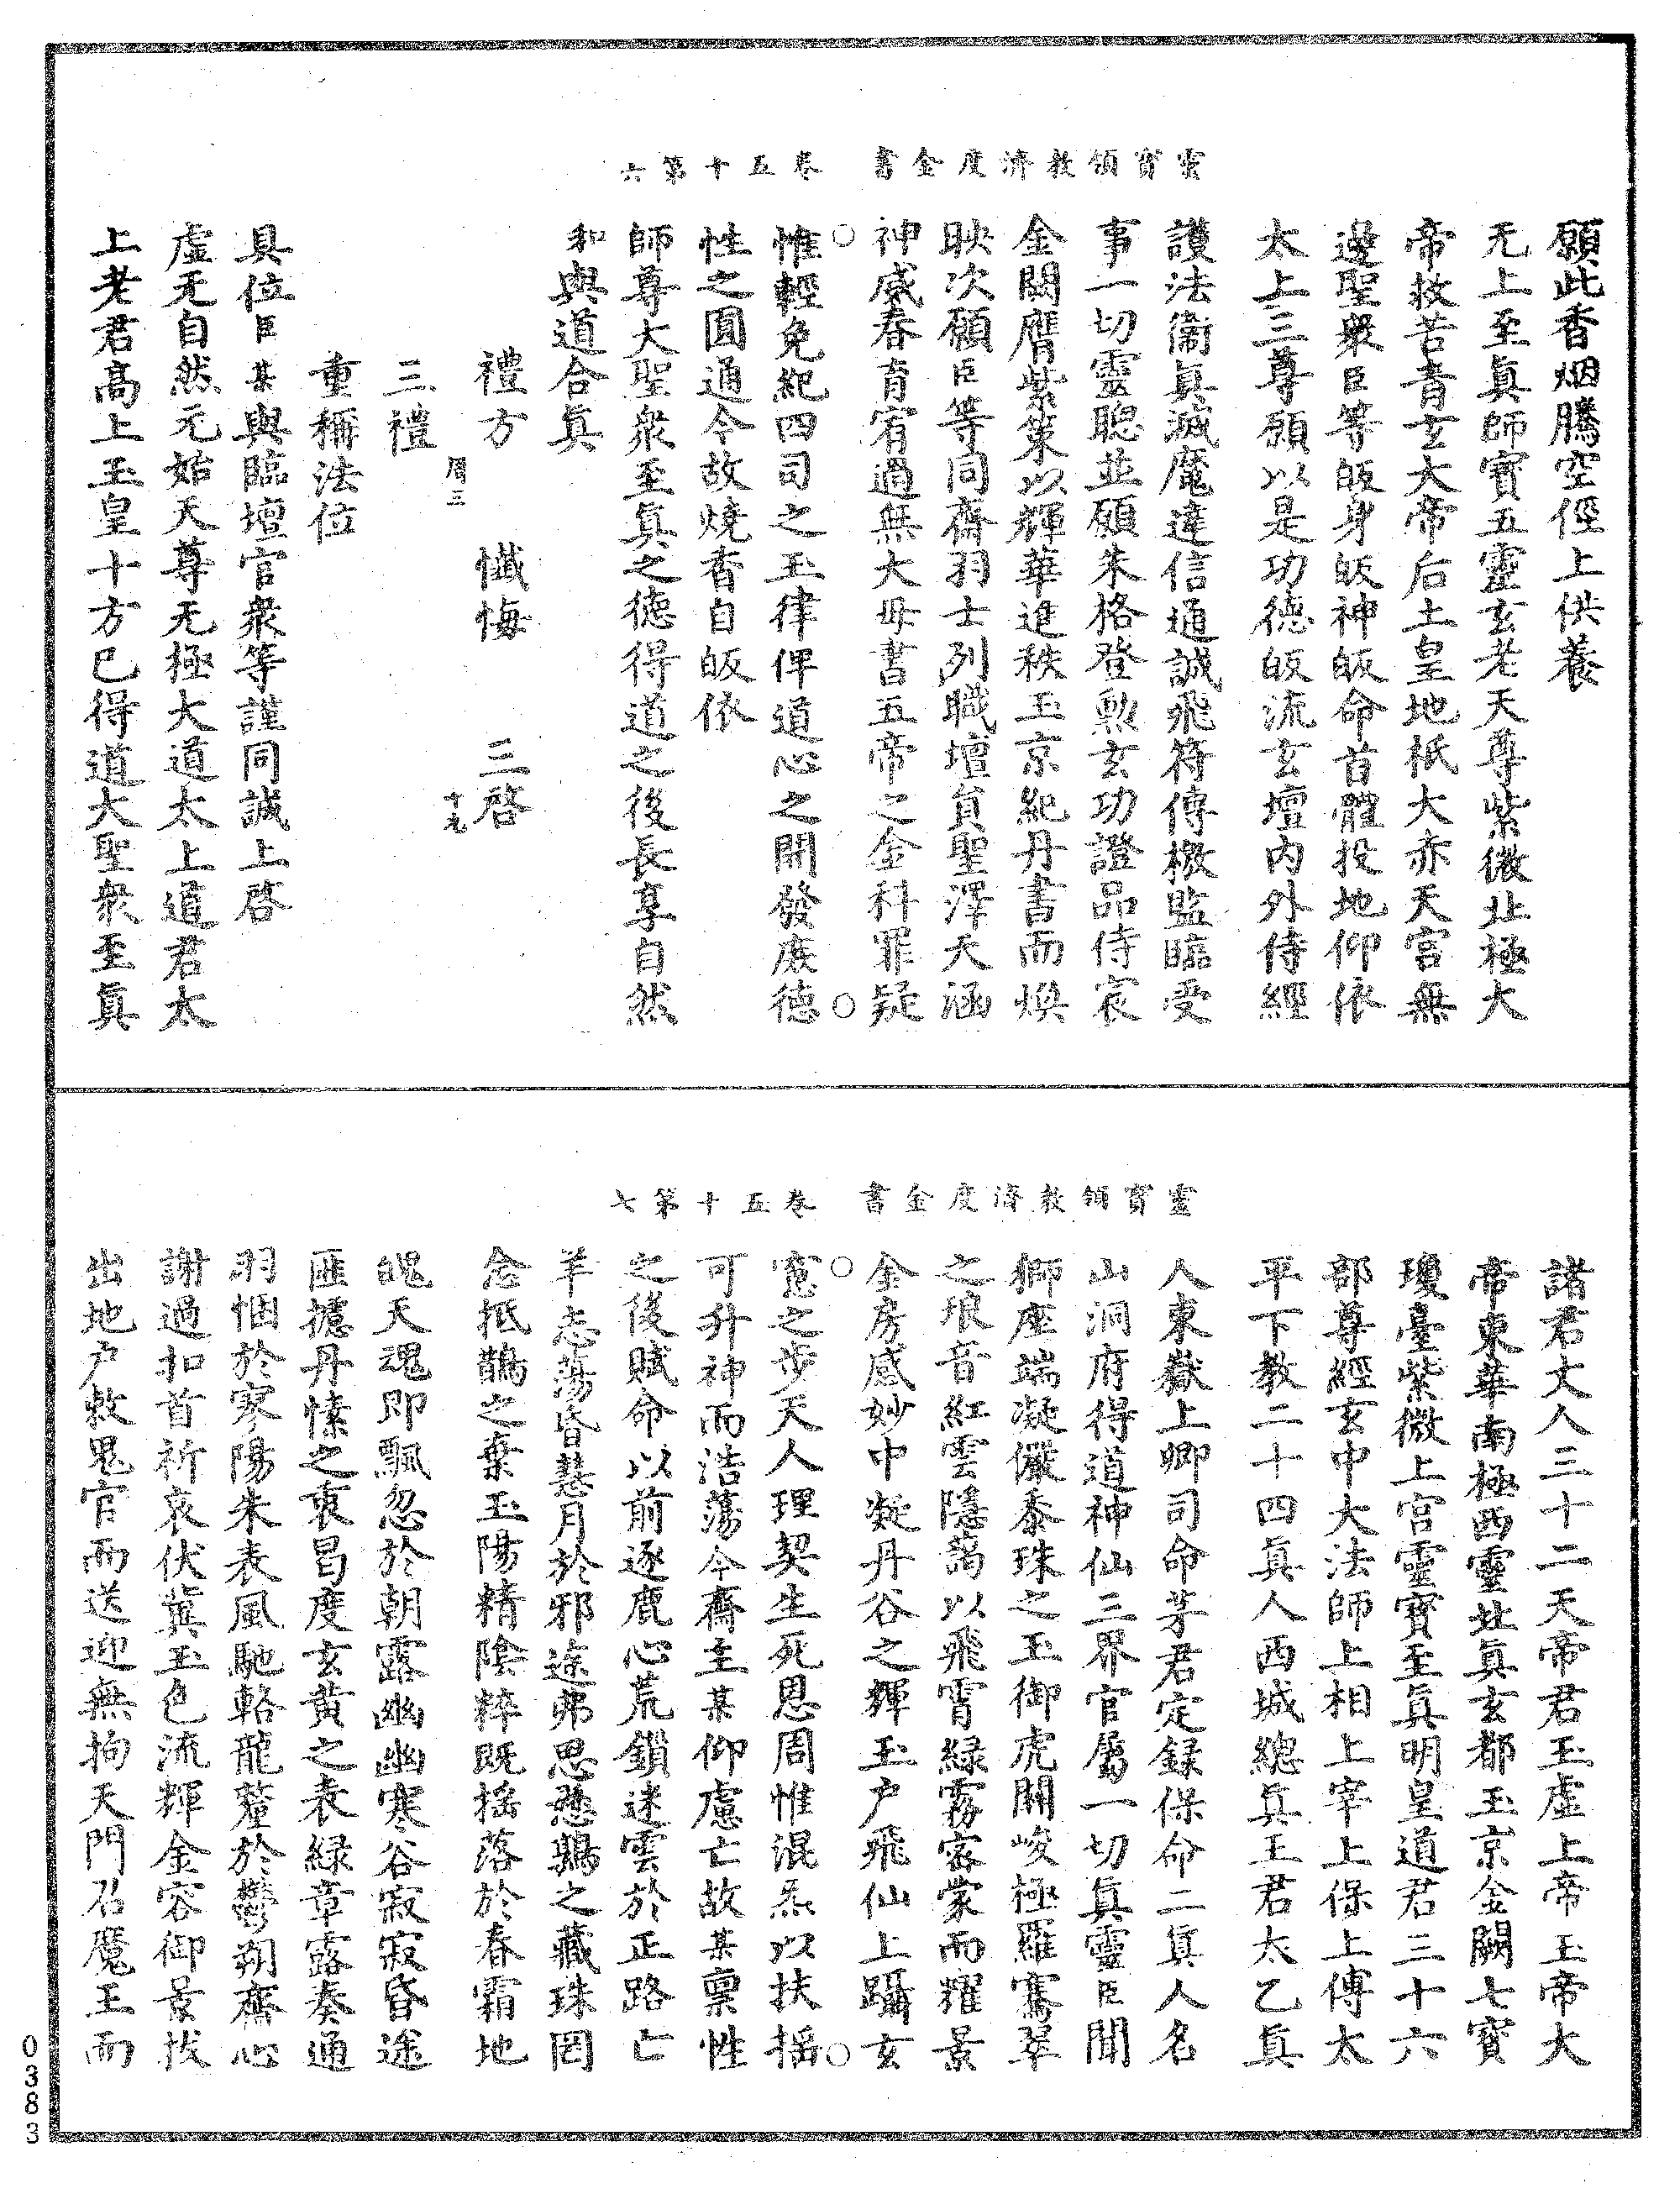 靈寶領教濟度金書　卷五十第六
願此香烟騰空徑上供養
无上至眞師寶五靈玄老天尊紫微北極大
帝救苦青玄大帝后土皇地祇大赤天宮無
邊聖衆臣等皈身皈神皈命首體投地仰依
太上三尊願以是功德皈流玄壇內外侍經
護法衞眞滅魔違信通誠飛符傳檄監臨受
事一切靈聰並願朱格登勲玄功證品侍宸
金闕膺紫策以輝華進秩玉京紀丹書而煥
映次願臣等同齋羽士列職壇員聖澤天涵
神威春育宥過無大毋書五帝之金科罪疑
惟輕免紀四司之玉律俾道心之開發庶德
性之圓通今故燒香自皈依
師尊大聖衆至眞之德得道之後長享自然
和與道合眞
禮方　懺悔　三啓
周三　十九
三禮
重稱法位
具位臣某與臨壇官衆等謹同誠上啓
虛无自然元始天尊无極大道太上道君太
上老君高上玉皇十方已得道大聖衆至眞
靈寶領教濟度金書　卷五十第七
諸君丈人三十二天帝君玉虛上帝玉帝大
帝東華南極西靈北眞玄都玉京金闕七寶
瓊臺紫微上宮靈寶至眞明皇道君三十六
部尊經玄中大法師上相上宰上保上傅太
平下教二十四眞人西城總眞王君太乙眞
人東嶽上卿司命茅君定録保命二眞人名
山洞府得道神仙三界官屬一切眞靈臣聞
獅座端凝儼黍珠之玉御虎關峻極羅騫翠
之琅音紅雲隱藹以飛霄緑霧密蒙而耀景
金房感妙中凝丹谷之輝玉户飛仙上躡玄
寃之步天人理契生死恩周惟混炁以扶搖
可升神而浩蕩今齋主某仰慮亡故某禀性
之後賦命以前逐鹿心荒鎖迷雲於正路亡
羊志蕩昏慧月於邪途弗思慈鷃之藏珠罔
念抵鵲之棄玉陽精陰粹既搖落於春霜地
魄天魂即飄忽於朝露幽幽寒谷寂寂昏途
匪攄丹愫之衷曷度玄黄之表緑章露奏通
羽悃於寥陽朱表風馳輅龍釐於鬱朔齋心
謝過扣首祈哀伏冀玉色流輝金容御景拔
出地户敕鬼官而送迎無拘天門召魔王而
0383